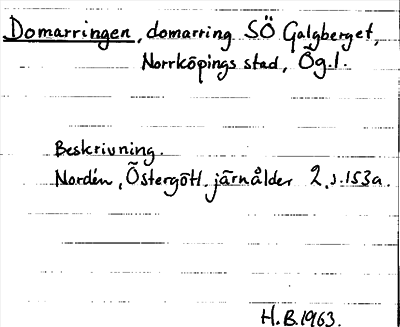 Domarringen, domarring SÖ Galgberget,
Norrköpings stad, Ög.l.
Beskrivning.
Nordén, Östergötl. järnålder 2, s. 153a.
H.B. 1963.